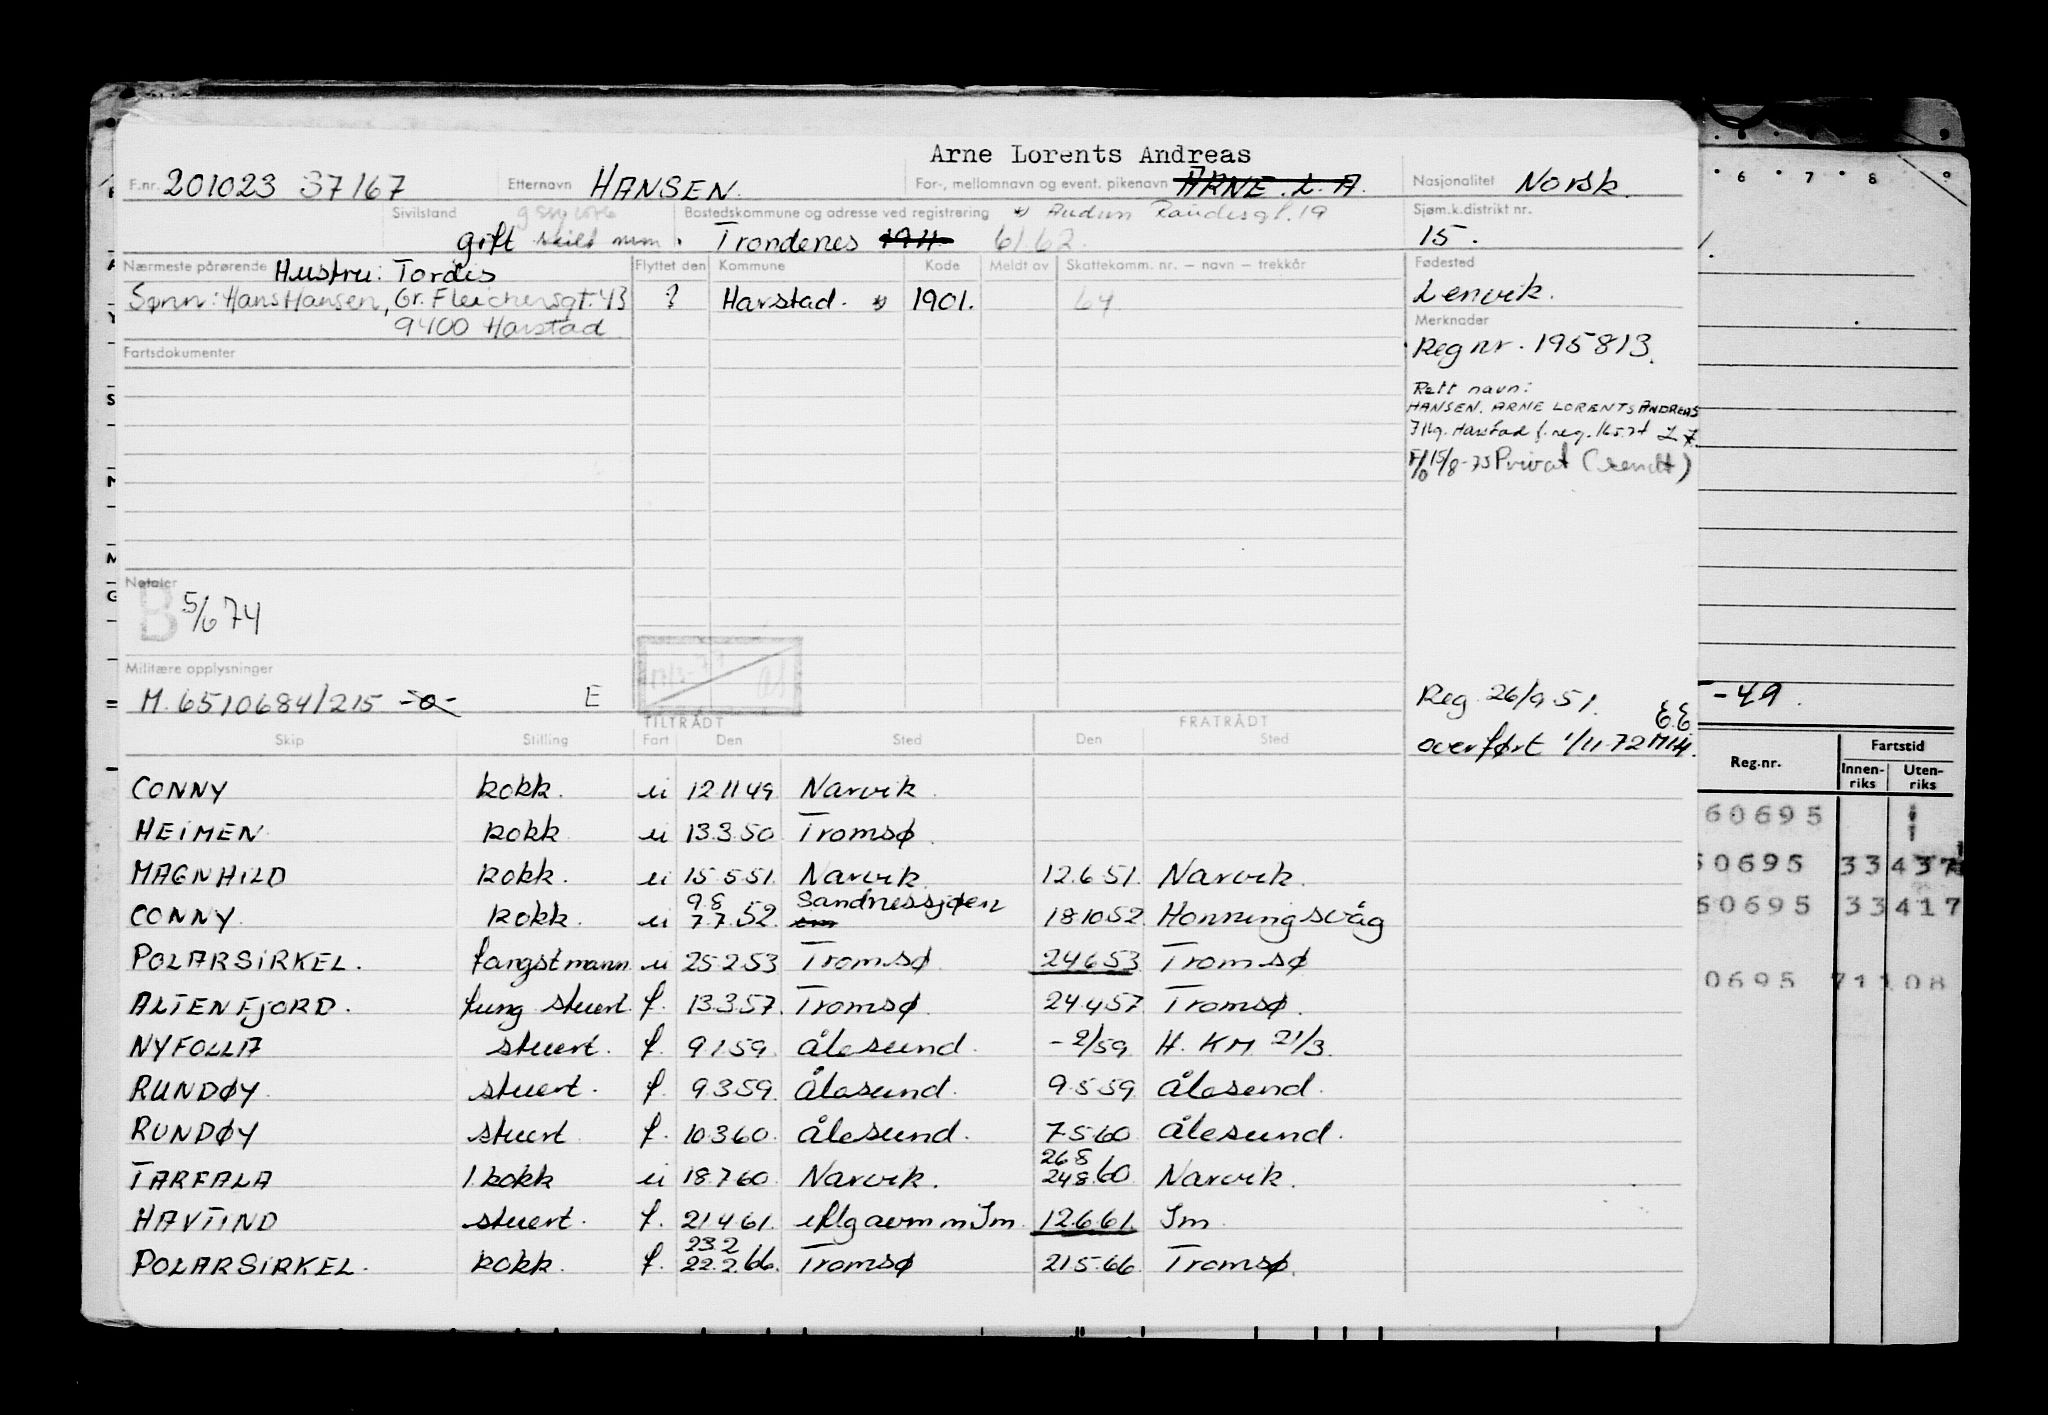 Arne Lorents Andreas
F.nr. 201023 37167 Etternavn HANSEN. For-, mellomnavn og event. pikenavn ARNE. L. A. Nasjonalitet Norsk.
Sivilstand Bostedskommune og adresse ved registrering Sjøm.k.distrikt nr.
gift Trondenes 1911 61.62. 15.
Nærmeste pårørende Hustru: Tordis Flyttet den Kommune Kode Meldt av Skattekomm. nr. — navn — trekkår Fødested
Sønn: Hans Hansen, Gr. Fleichersgt. 43 ? Harstad. 1901. 64 Lenvik.
9400 Harstad Merknader
Fartsdokumenter Reg nr. 195813.
Rett navn:
HANSEN. ARNE LORENTS ANDREAS
Harstad f. reg.
F/O 15/8-75 Privat (sendt)
Notater
B 5/6 74
Militære opplysninger
M. 6510684/215 -o- E Reg. 26/9.51. -49.
E.E
overført 1/11-72 MH.
TILTRÅDT FRATRÅDT
Skip Stilling Fart Den Sted Den Sted
Reg.nr. Fartstid
Innen-riks Uten-riks
CONNY kokk. u 12.11.49 Narvik.
HEIMEN kokk u 13.3.50 Tromsø.
MAGNHILD kokk. u 15.5.51. Narvik. 12.6.51. Narvik.
9.8 Sandnessjøen
CONNY. kokk. u 7.7.52. 18.10.52 Honningsvåg
POLARSIRKEL. fangstmann u 25.2.53 Tromsø. 24.6.53 Tromsø
ALTENFJORD. fung stuert. f. 13.3.57. Tromsø. 24.4.57. Tromsø.
NYFOLLA stuert. f. 9.1.59. Ålesund. -2/59 H. KM 21/3.
RUNDØY. stuert. f. 9.3.59. Ålesund. 9.5.59. Ålesund.
RUNDØY stuert f. 10.3.60. Ålesund. 7.5.60 Ålesund.
26.8
TARFALA 1. kokk u 18.7.60. Narvik. 24.8.60 Narvik.
HAVTIND stuert. f. 21.4.61. iflg avm m Im. 12.6.61. Im.
23.2
POLARSIRKEL. kokk. f. 22.2.66. Tromsø 21.5.66. Tromsø.
60695
60695 33437
60695 33417
0695 71108
6 7 8 9